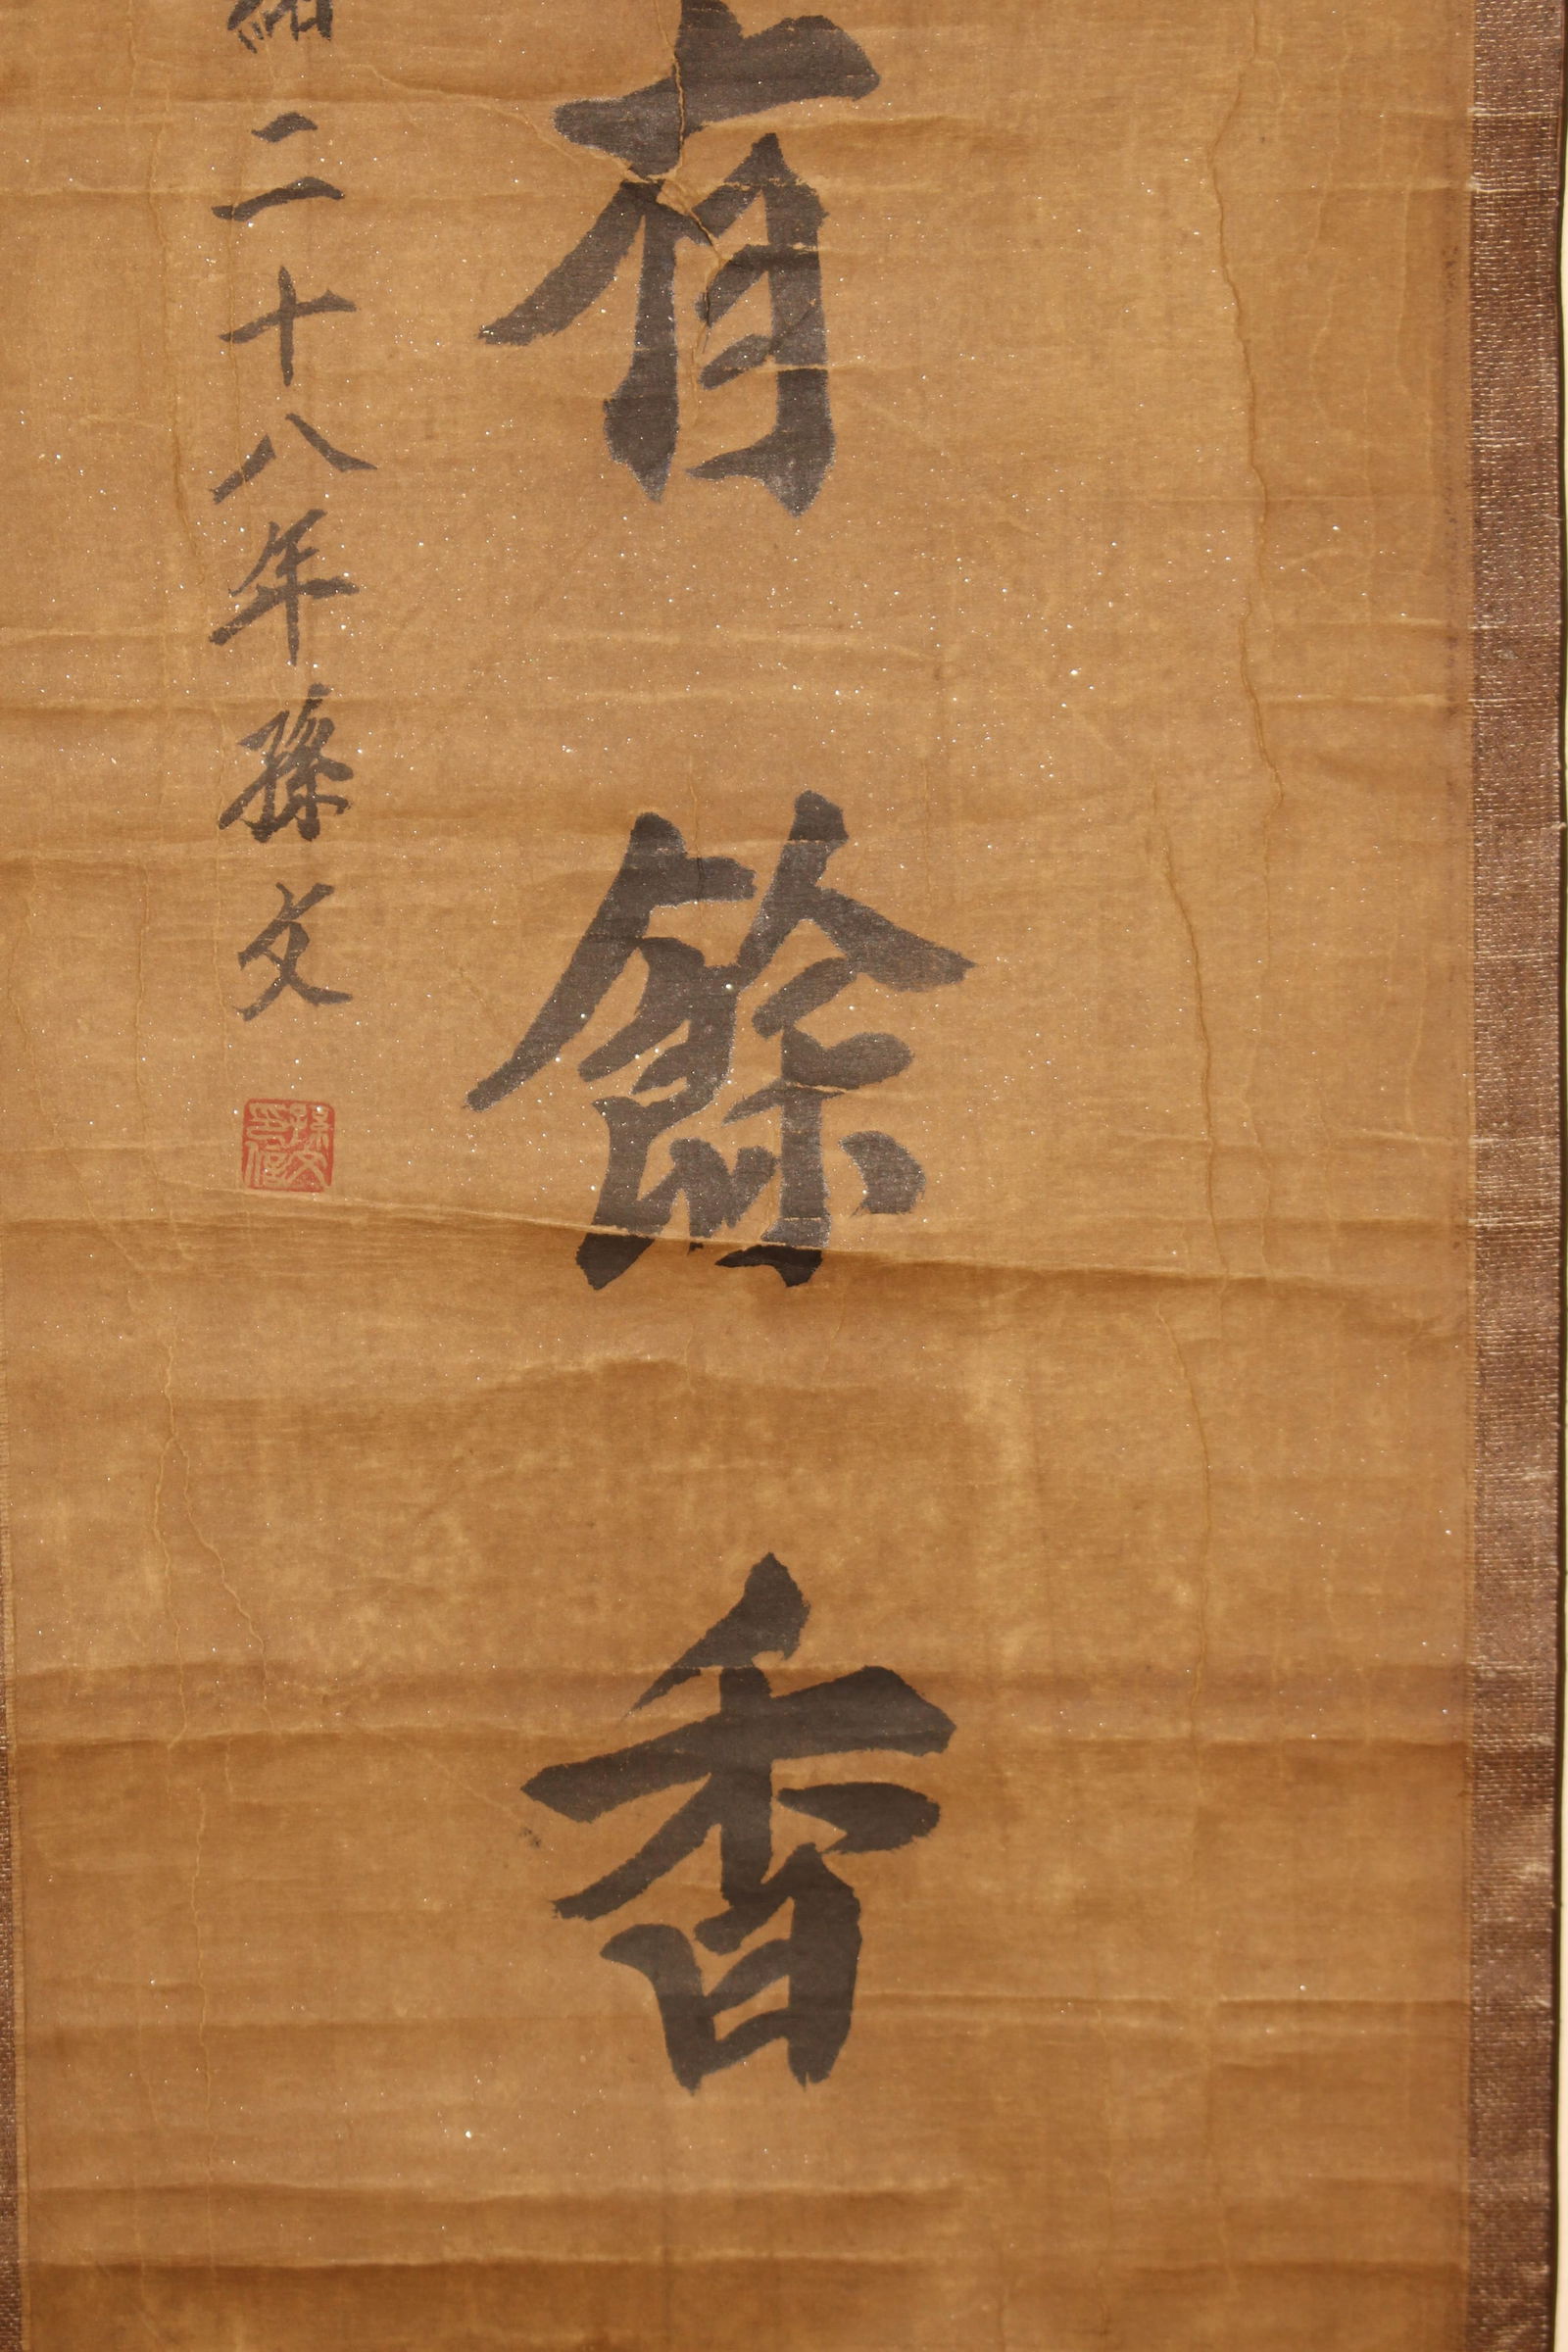 有餘香
緒二十八年孫文
孫文
印信